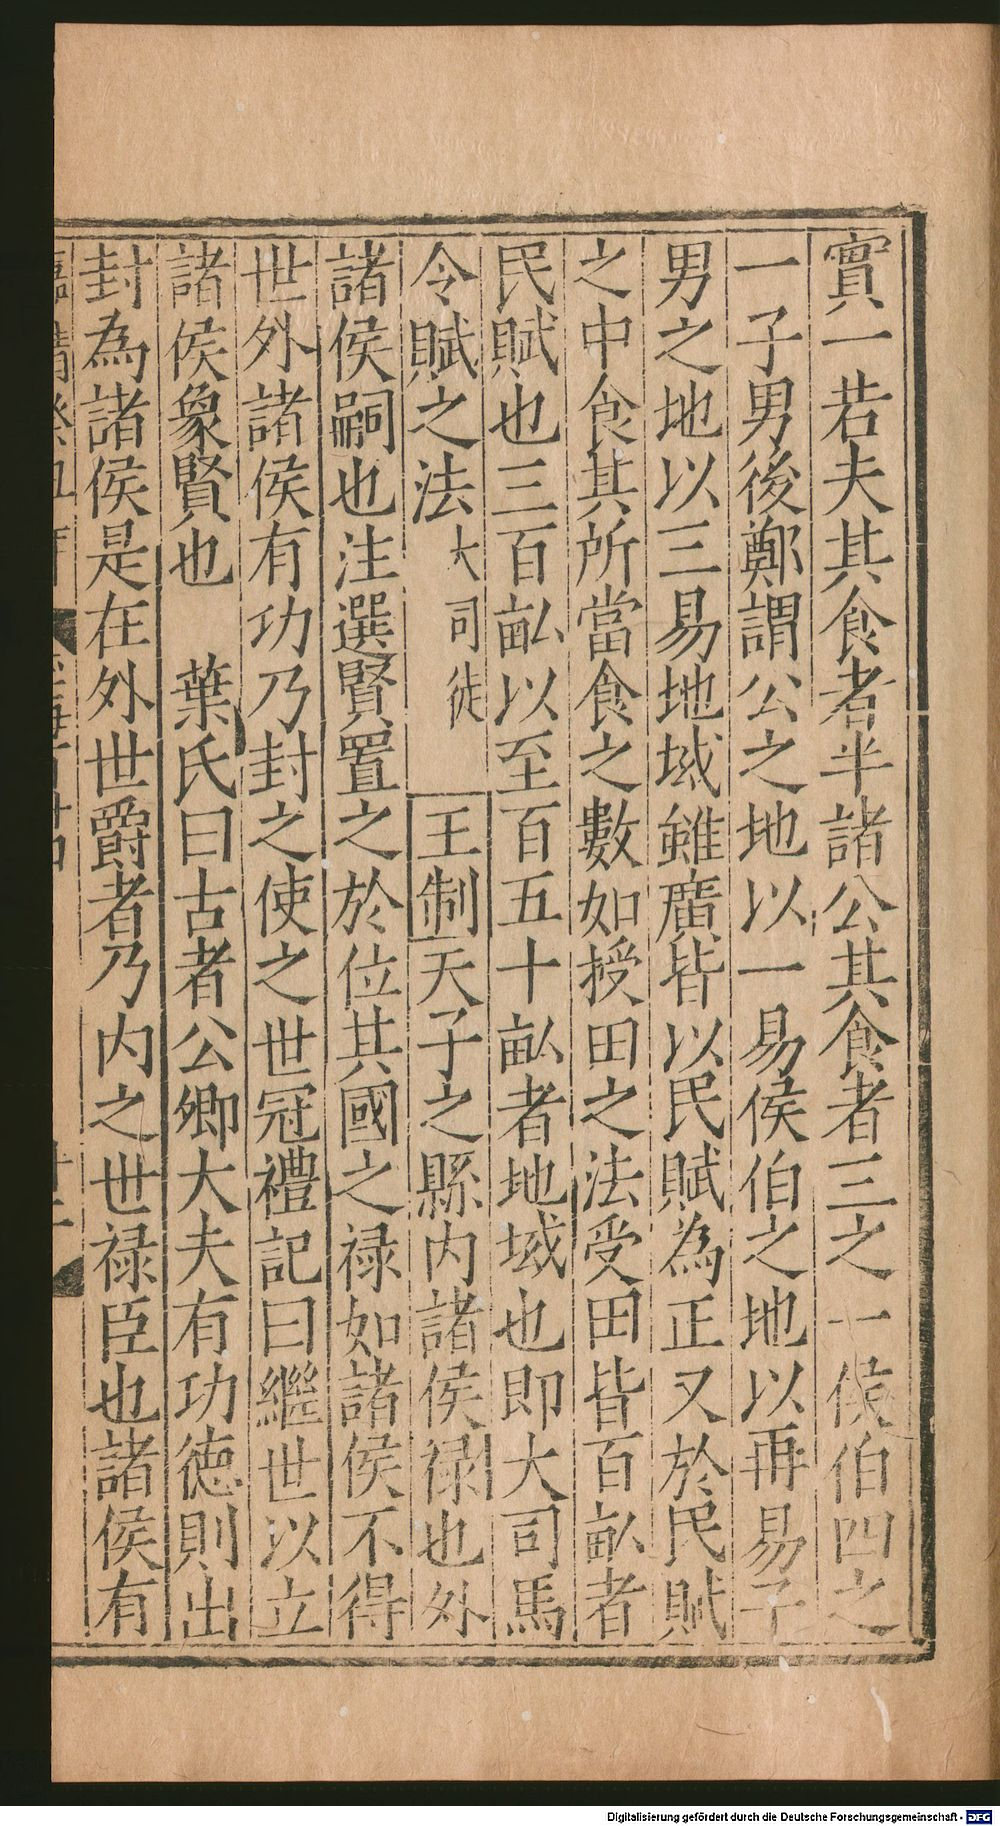 實一若夫其食者半諸公其食者三之一侯伯四之
一子男後鄭謂公之地以一易侯伯之地以再易子
男之地以三易地域雖廣皆以民賦為正又於民賦
之中食其所當食之數如授田之法受田皆百畝者
民賦也三百畝以至百五十畝者地域也即大司馬
令賦之法 大司徒 王制天子之縣內諸侯祿也外
諸侯嗣也注選賢置之於位其國之祿如諸侯不得
世外諸侯有功乃封之使之世冠禮記曰繼世以立
諸侯象賢也 葉氏曰古者公卿大夫有功德則出
封為諸侯是在外世爵者乃內之世祿臣也諸侯有
Digitalisierung gefördert durch die Deutsche Forschungsgemeinschaft - DFG